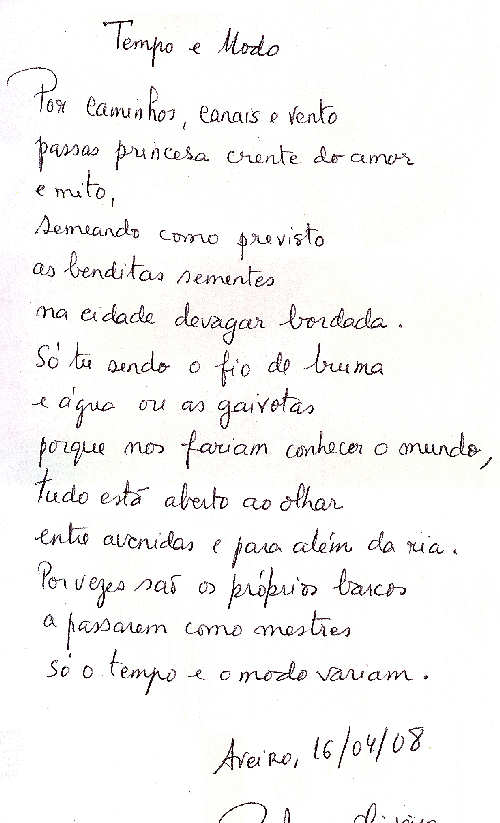 Tempo e Modo
Por caminhos, canais e vento
passas princesa crente do amor
e mito,
semeando como previsto
as benditas sementes
na cidade devagar bordada.
Só tu sendo o fio de bruma
e água ou as gaivotas
porque nos fariam conhecer o mundo,
tudo está aberto ao olhar
entre avenidas e para além da ria.
Por vezes saõ os próprios barcos
a passarem como mestres
só o tempo e o modo variam.
Aveiro, 16/04/08